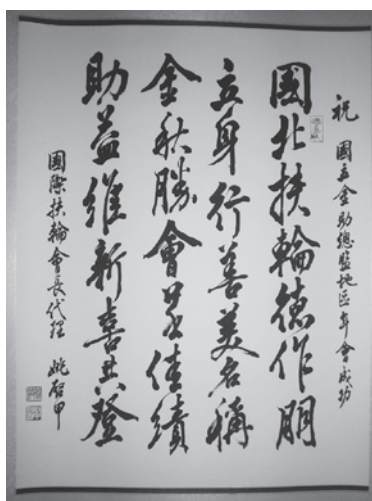 祝 國立金助總監地區年會成功
國北扶輪德作朋
立身行善美名稱
金秋勝會呈佳績
助益維新喜共登
國際扶輪會長代理 姚啓甲